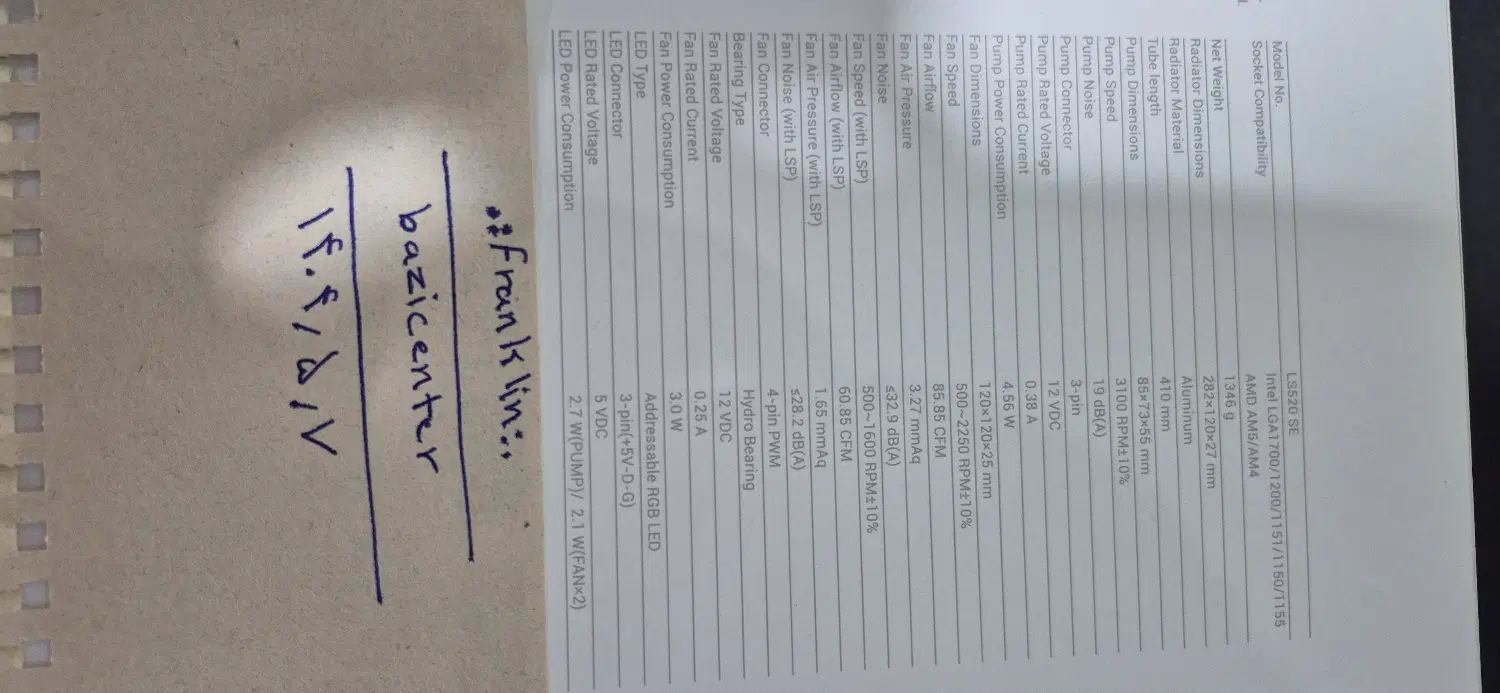 Model No. LS520 SE
Socket Compatibility Intel LGA1700/1200/1151/1150/1155
AMD AM5/AM4
Net Weight 1346 g
Radiator Dimensions 282×120×27 mm
Radiator Material Aluminum
Tube length 410 mm
Pump Dimensions 85×73×55 mm
Pump Speed 3100 RPM±10%
Pump Noise 19 dB(A)
Pump Connector 3-pin
Pump Rated Voltage 12 VDC
Pump Rated Current 0.38 A
Pump Power Consumption 4.56 W
Fan Dimensions 120×120×25 mm
Fan Speed 500~2250 RPM±10%
Fan Airflow 85.85 CFM
Fan Air Pressure 3.27 mmAq
Fan Noise ≤32.9 dB(A)
Fan Speed (with LSP) 500~1600 RPM±10%
Fan Airflow (with LSP) 60.85 CFM
Fan Air Pressure (with LSP) 1.65 mmAq
Fan Noise (with LSP) ≤28.2 dB(A)
Fan Connector 4-pin PWM
Bearing Type Hydro Bearing
Fan Rated Voltage 12 VDC
Fan Rated Current 0.25 A
Fan Power Consumption 3.0 W
LED Type Addressable RGB LED
LED Connector 3-pin(+5V-D-G)
LED Rated Voltage 5 VDC
LED Power Consumption 2.7 W(PUMP)/ 2.1 W(FAN×2)
..:franklin:..
bazicenter
۱۴۰۴/۵/۷